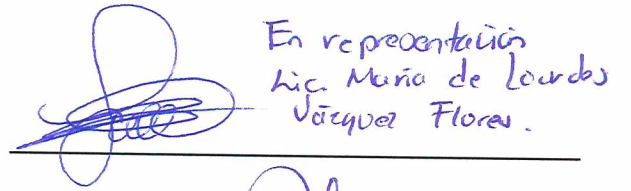 En representación
Lic. María de Lourdes
Vázquez Flores.